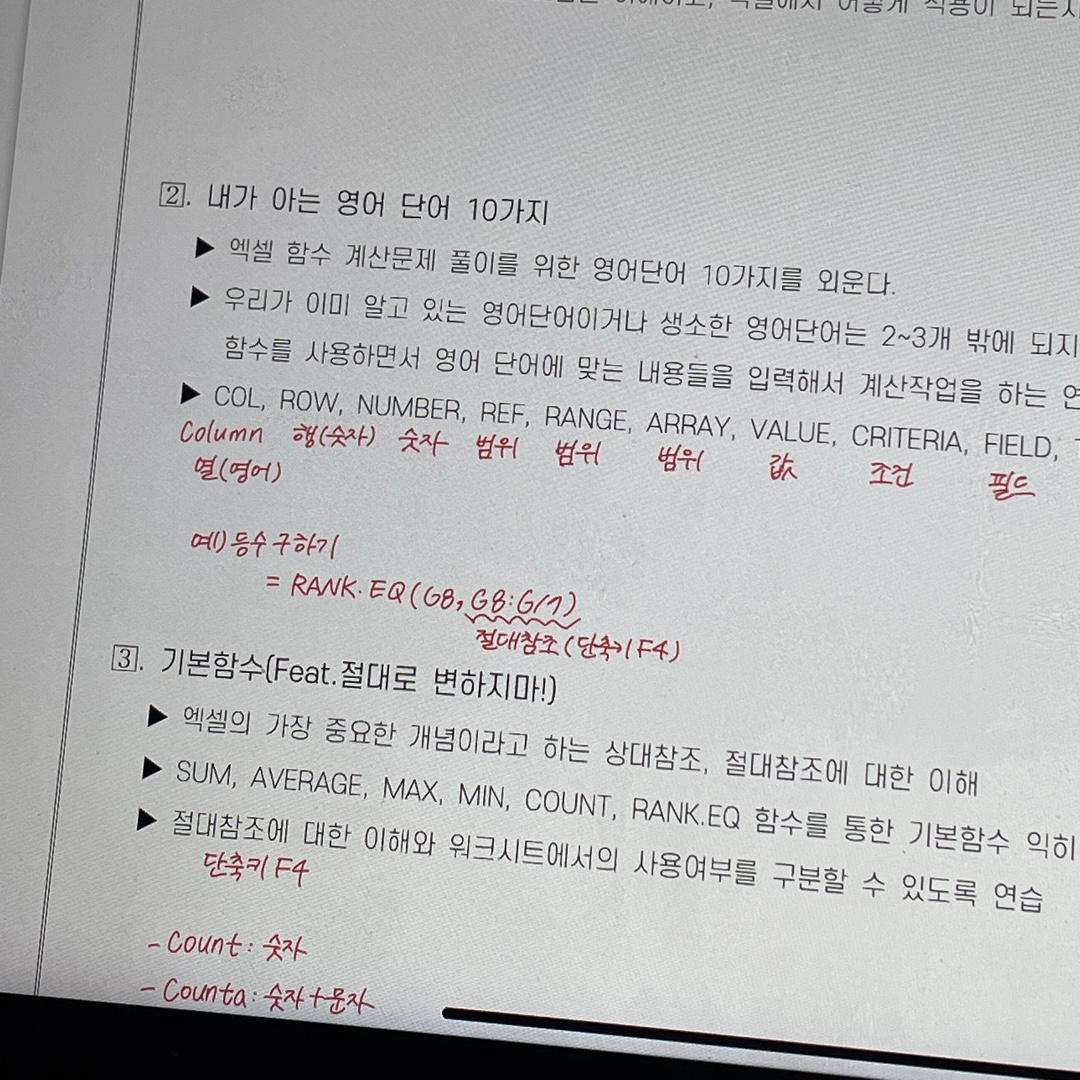 2. 내가 아는 영어 단어 10가지
▶ 엑셀 함수 계산문제 풀이를 위한 영어단어 10가지를 외운다.
▶ 우리가 이미 알고 있는 영어단어이거나 생소한 영어단어는 2~3개 밖에 되지
함수를 사용하면서 영어 단어에 맞는 내용들을 입력해서 계산작업을 하는
▶ COL, ROW, NUMBER, REF, RANGE, ARRAY, VALUE, CRITERIA, FIELD,
Column 행(숫자) 숫자 범위 범위 범위 값 조건 필드
열(영어)
예) 등수 구하기
= RANK.EQ(G8, G8:G17)
절대참조(단축키 F4)
3. 기본함수(Feat.절대로 변하지마!)
▶ 엑셀의 가장 중요한 개념이라고 하는 상대참조, 절대참조에 대한 이해
▶ SUM, AVERAGE, MAX, MIN, COUNT, RANK.EQ 함수를 통한 기본함수 익히
▶ 절대참조에 대한 이해와 워크시트에서의 사용여부를 구분할 수 있도록 연습
단축키 F4
- Count : 숫자
- Counta : 숫자+문자